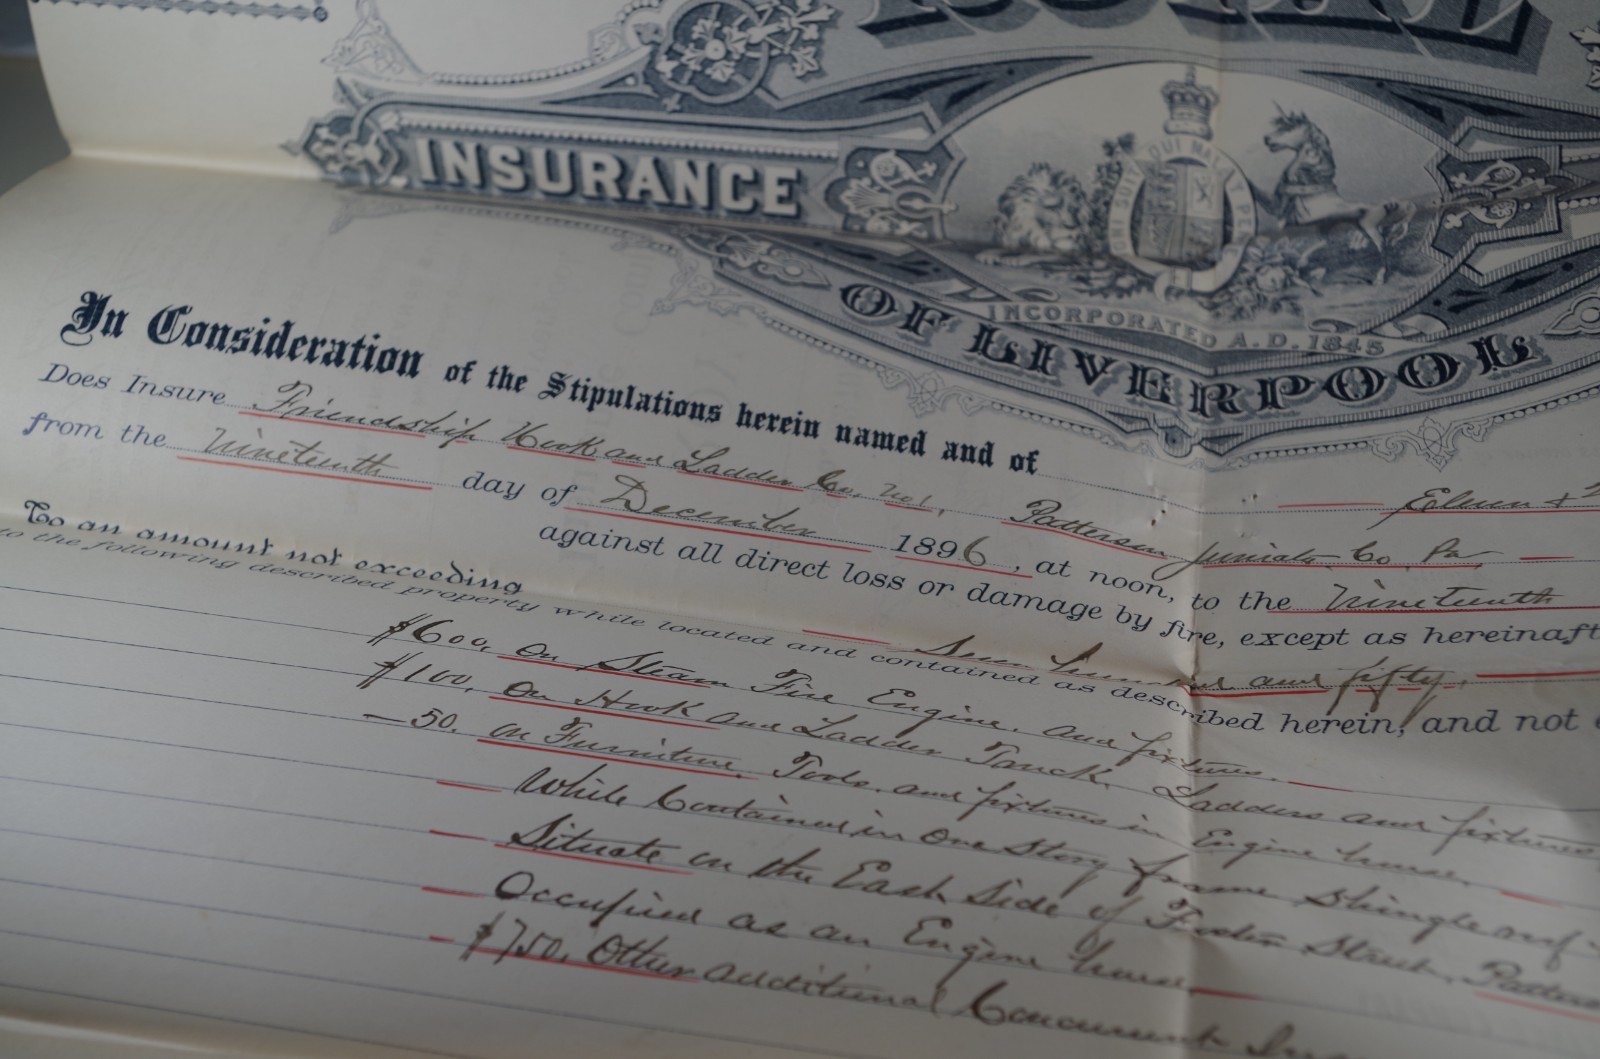 INSURANCE
QUI MAL Y
INCORPORATED A.D. 1845
OF LIVERPOOL
In Consideration of the Stipulations herein named and of
Does Insure Friendship Hook and Ladder Co. No 1, Patterson Juniata Co. Pa
from the Nineteenth day of December 1896, at noon, to the Nineteenth
against all direct loss or damage by fire, except as hereinaft
To an amount not exceeding Seven hundred and fifty
to the following described property while located and contained as described herein, and not
$600, on Steam Fire Engine, and fixtures.
$100, on Hook and Ladder Truck, Ladders and fixtures
50. on Furniture, Tools, and fixtures in Engine house.
While Contained in one Story frame Shingle roof
Situate on the East Side of Street,
Occupied as an Engine house
$750, Other additional Concurrent